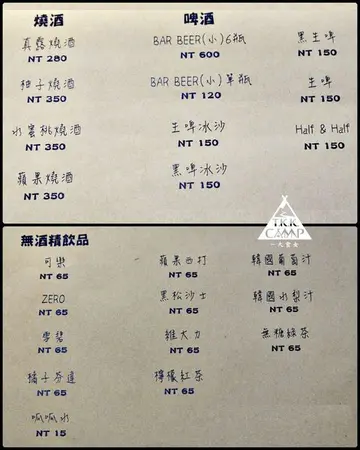 燒酒
真露燒酒
NT 280
柚子燒酒
NT 350
水蜜桃燒酒
NT 350
蘋果燒酒
NT 350
啤酒
BAR BEER(小)6瓶
NT 600
BAR BEER(小)單瓶
NT 120
生啤冰沙
NT 150
黑啤冰沙
NT 150
黑生啤
NT 150
生啤
NT 150
Half & Half
NT 150
TKK
CAMP
一大堂女
無酒精飲品
可樂
NT 65
ZERO
NT 65
雪碧
NT 65
橘子芬達
NT 65
呱呱水
NT 15
蘋果西打
NT 65
黑松沙士
NT 65
維大力
NT 65
檸檬紅茶
NT 65
韓國葡萄汁
NT 65
韓國水梨汁
NT 65
無糖綠茶
NT 65